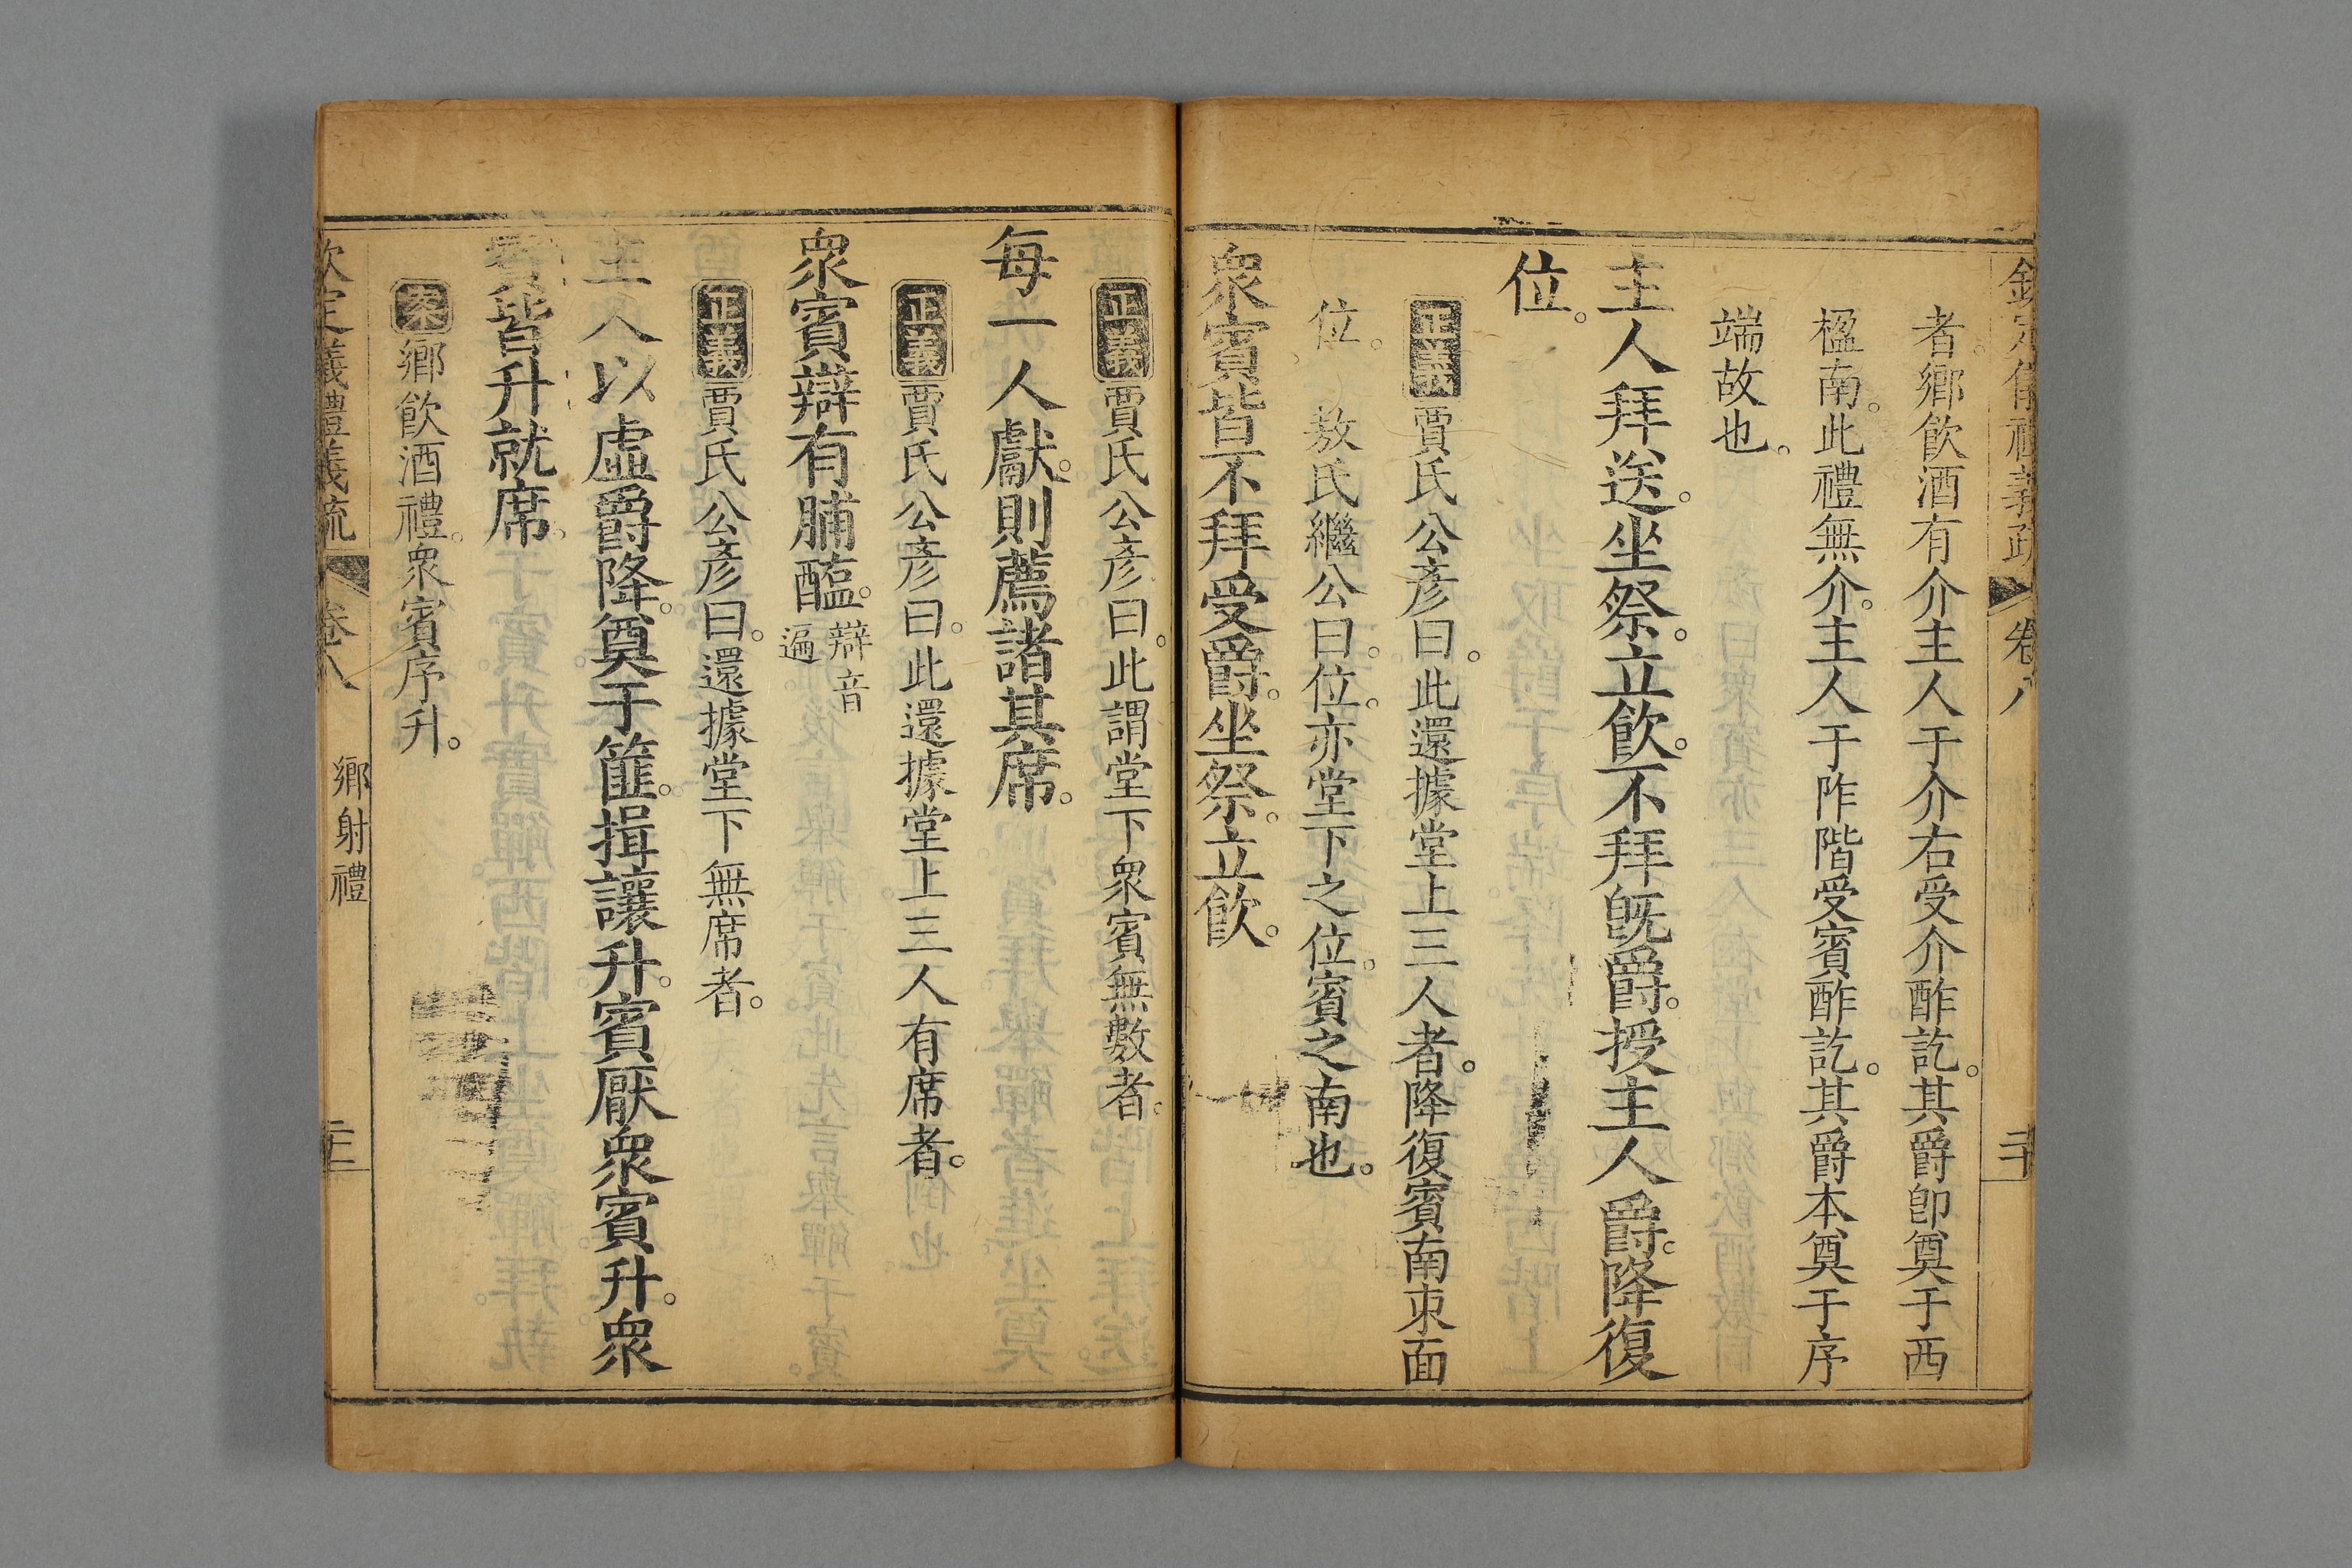 欽定儀禮義疏 卷八 二十
者。鄉飲酒有介主人于介右受介酢訖。其爵卽奠于西
楹南。此禮無介。主人于阼階受賓酢訖。其爵本奠于序
端故也。
主人拜送。坐祭。立飲。不拜旣爵。授主人爵。降復
位。
正義賈氏公彥曰。此還據堂上三人者。降復賓南東面
位。 敖氏繼公曰。位。亦堂下之位。賓之南也。
衆賓皆不拜受爵。坐祭。立飲。
正義賈氏公彥曰。此謂堂下衆賓無數者。
每一人獻。則薦諸其席。
正義賈氏公彥曰。此還據堂上三人有席者。
衆賓辯有脯醢。辯音遍
正義賈氏公彥曰。還據堂下無席者。
主人以虛爵降。奠于篚。揖讓升。賓厭衆賓升。衆
賓皆升就席。
案鄉飲酒禮。衆賓序升。
欽定儀禮義疏 卷八 鄉射禮